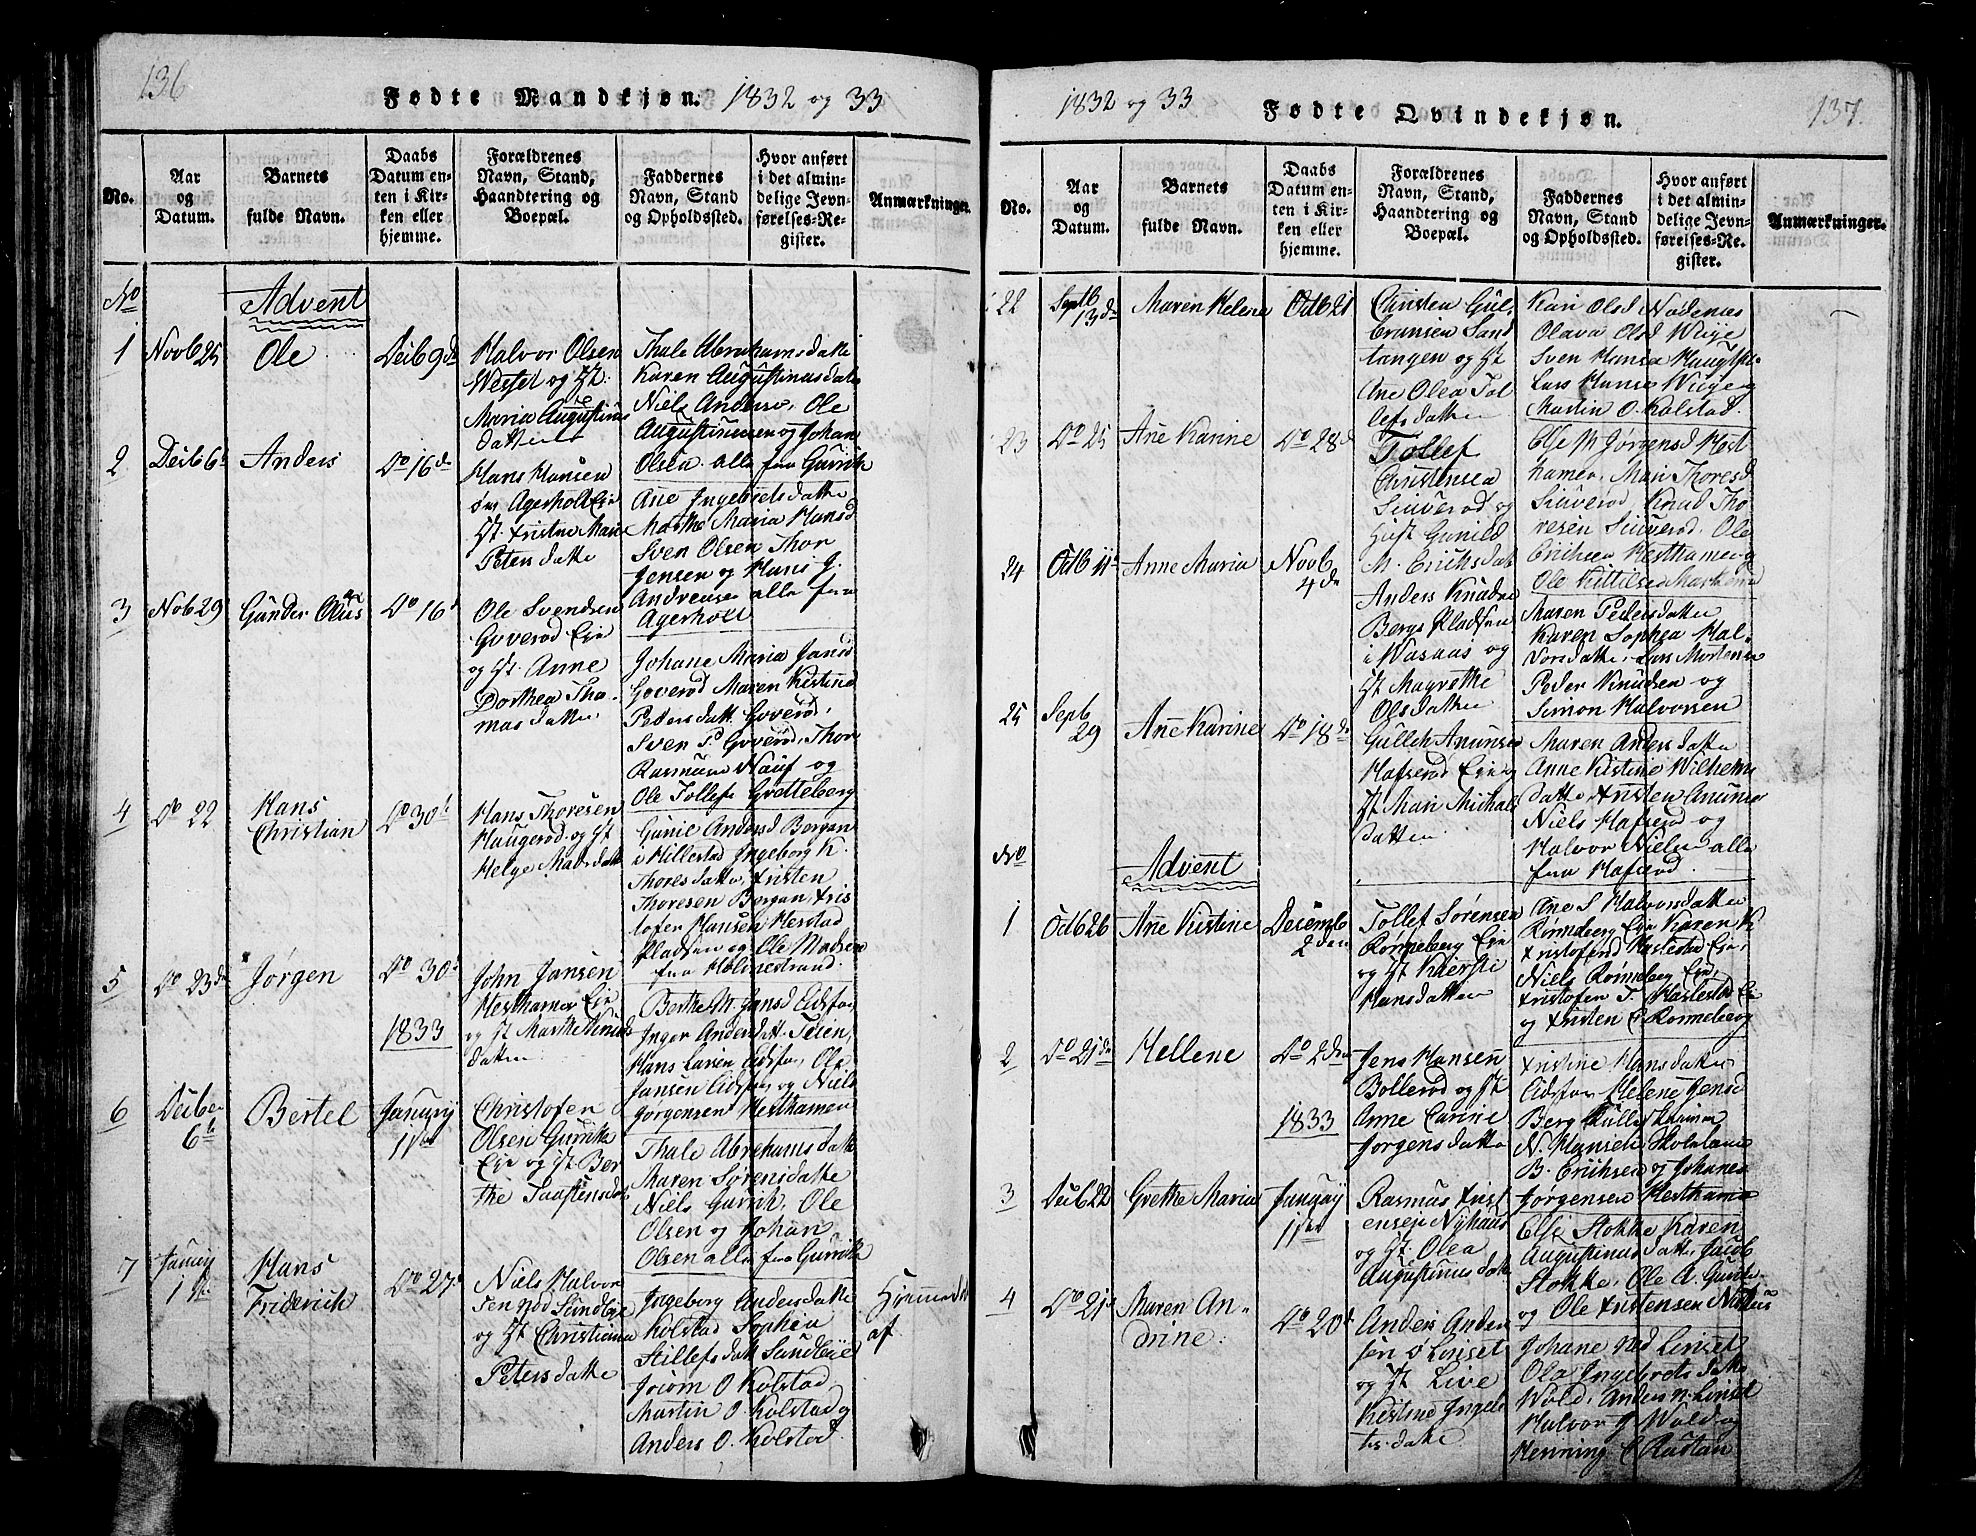 136
Fødte Mandkjøn. 1832 og 33
No.
Aar og Datum.
Barnets fulde Navn.
Daabs Datum enten i Kirken eller hjemme.
Forældrenes Navn, Stand, Haandtering og Boepæl.
Faddernes Navn, Stand og Opholdssted.
Hvor anført i det almindelige Jevnførelses-Register.
Anmærkninger.
No
Advent
1
Novb 25
Ole
Decb 9de
Halvor Olsen
og
Maria Augustinus
datter
Thale Abrahamsdatte
Karen Augustinusdatte
Niels Anders. Ole
Augustinusen og Johan
Olsen alle fra Gurrik
2
Decb 6t
Anders
Do 16de
Hans Hansen
Agerholt Eje
Kristine Marie
Petersdatte
Ane Ingebretsdatte
Marthe Maria Hansd
Sven Olsen Thor
Jensen og Hans J.
Andreasen alle fra
Agerholt
3
Novb 29
Gunder Olaus
Do 16t
Ole Svendsen
Goverod Eje
og Anne
Dorthea Tho-
masdatter
Johane Maria Jansd
Goverød Maren Kistine
Pedersdatt. Goverød,
Sven P. Goverød, Thor
Rasmusen Nauf og
Ole Tollefs Gretteberg
4
Do 22
Hans
Christian
Do 30t
Hans Thoresen
Haugerød og
Helge Madsdatt
Gunie Andersd Bergan
i Hillestad Ingeborg K.
Thoresdatte, Kristen
Thoresen Bergan, Kris
tofer Hansen Herstad
Pladsen og Ole Madsen
fra Holmestrand.
5
Do 23de
Jørgen
Do 30t
John Jansen
Hesthamer Eje
og Marthe Knuds
datter
Berthe M. Jansd Eidsfos,
Inger Andersdtt. Teien,
Hans Larsen Eidsfos, Ole
Jansen Eidsfos og Niels
Jørgensen Hesthamer
1833
6
Decber
6t
Bertel
Januarij
1ste
Christofer
Olsen Gurrik
Eje og Ber
the
Thale Abrehamsdatte
Maren Sørensdatte
Niels Gurrik, Ole
Olsen og Johan
Olsen alle fra Gurrik
7
Januarj
1ste
Hans
Friderich
Do 27
Niels Halvor
sen
og Christiana
Petersdatte
Ingeborg Andersdatte
Kolstad Sophia
datt Sandbeie
O Kolstad
Martin O. Kolstad og
Anders O. Kolstad.
Hjemmedøbt
af
1832 og 33
Fødte Qvindekjøn.
137.
No.
Aar og Datum.
Barnets fulde Navn.
Daabs Datum enten i Kirken eller hjemme.
Forældrenes Navn, Stand, Haandtering og Boepæl.
Faddernes Navn, Stand og Opholdssted.
Hvor anført i det almindelige Jevnførelses-Register.
Anmærkninger.
22
Septb
13de
Maren Helene
Octb 21
Christen Gul-
bransen Sand
tangen og
Ane Olea Tol
lefsdatter
Kari Olsd Nødenes
Olava Olsd Wiige
Sven Hansen
Lars Hansen Wiige og
Martin O. Kolstad.
23
Do 25
Ane Karine
Do 28de
Tollef
Christensen
Siuverød og
Gunild
M. Erichsdat
Else M Jørgensd Hest
hamer, Mari Thoresd
Siuverød Knud Tho
resen Siuverød, Ole
Erichsen Hesthamer og
Ole Kittilsen
24
Octb 11t
Anne Maria
Novb
4de
Anders Knudsen
Bergs Pladsen
i Wasaas og
Magrethe
Olsdatter
Maren Pedersdatter
Karen Sophea Hal-
vorsdatte, Lars Mortensen
Peder Knudsen og
Simon Halvorsen
25
Septb
29
Ane Karine
Do 18de
Gullek Anunsen
Hafserød Eje og
Mari Michals
datter
Maren Andersdatter
Anne Kistine Wilhelms
datte, Kristen Anunsen
Niels Hafserød og
Halvor Nielsen alle
fra Hafserød.
No
Advent
1
Octb 26
Ane Kistine
Decemb
2den
Tollef Sørensen
Rønneberg Eje
og Kiersti
Hansdatter
Ane S Halvorsdatter
Rønneberg Eje Karen K
Kristofersd Haslestad Eje,
Niels Rønneberg Eje,
Kristofer T. Haslestad Eje
og Kristen E Rønneberg
2
Do 21de
Hellene
Do 2den
Jens Hansen
Bollerød og
Anne Carine
Jørgensdatte
Kristine Hansdatter
Eidsfos Helene Jensd
Berg
N. Hansen
B. Erichsen og Johanes
Jørgensen Hesthamer
1833
3
Decb 22
Grethe Maria
Januarj
1ste
Rasmus Krist
ensen Nyhaus
og Olea
Augustinusdatte
Else Stokke Karen
Augustinusdatte. Jacob
Stokke, Ole A. Gurrik
og Ole Kristensen
4
Do 21de
Maren An-
drine.
Do 20de
Anders Ander
sen Linset
og Live
Kistine Inge
datte
Johane Linset
Ola Ingebretsdatte
Wold, Anders N. Linset
Halvor J Wold og
Henning C Rustan